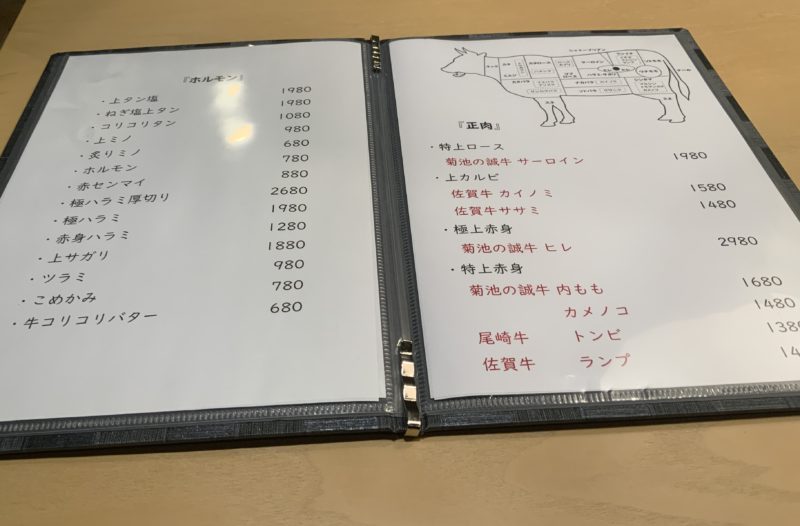 『ホルモン』
・上タン塩 1980
・ねぎ塩上タン 1980
・コリコリタン 1080
・上ミノ 980
・炙りミノ 680
・ホルモン 780
・赤センマイ 880
・極ハラミ厚切り 2680
・極ハラミ 1980
・赤身ハラミ 1280
・上サガリ 1880
・ツラミ 980
・こめかみ 780
・牛コリコリバター 680
シャトーブリアン
サーロイン
『正肉』
・特上ロース
菊池の誠牛 サーロイン 1980
・上カルビ
佐賀牛 カイノミ 1580
佐賀牛ササミ 1480
・極上赤身
菊池の誠牛 ヒレ 2980
・特上赤身
菊池の誠牛 内もも 1680
カメノコ 1480
尾崎牛 トンビ 138
佐賀牛 ランプ 14